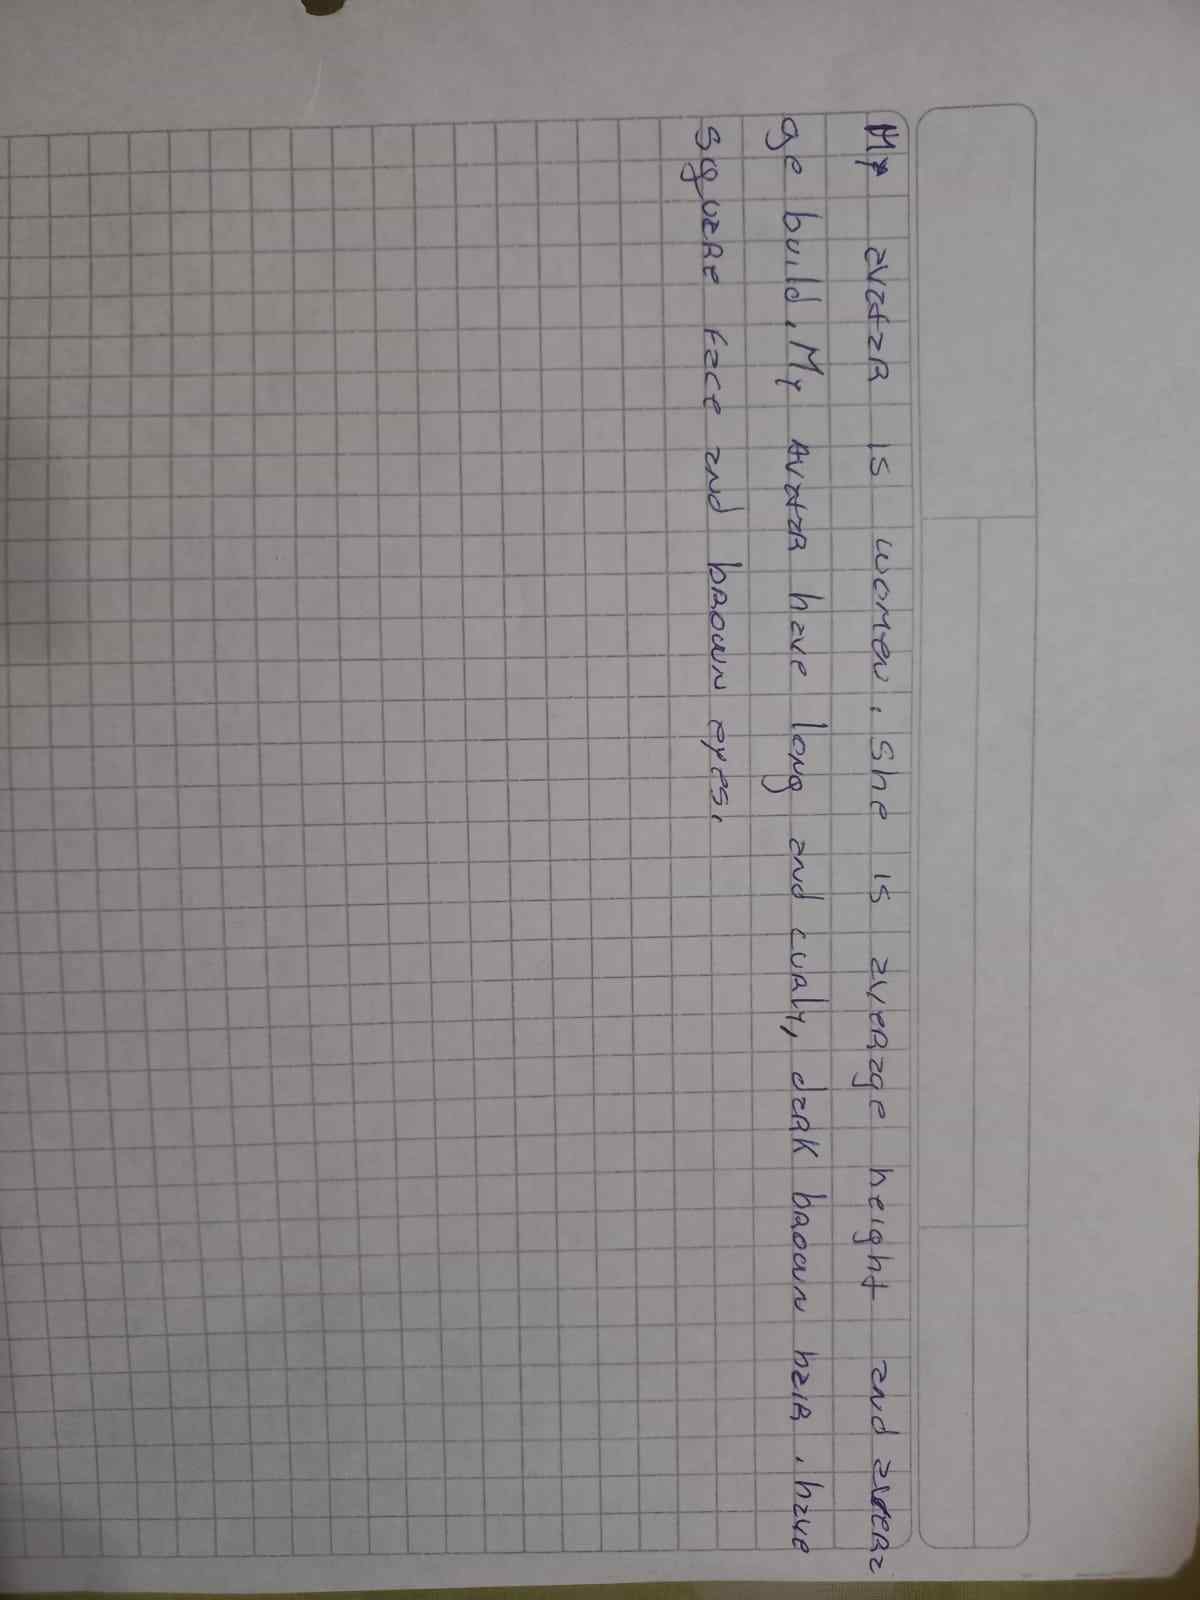 My avatar is women. She is average height and avera
ge build. My Avatar have long and curly, dark brown hair. have
square face and brown eyes.